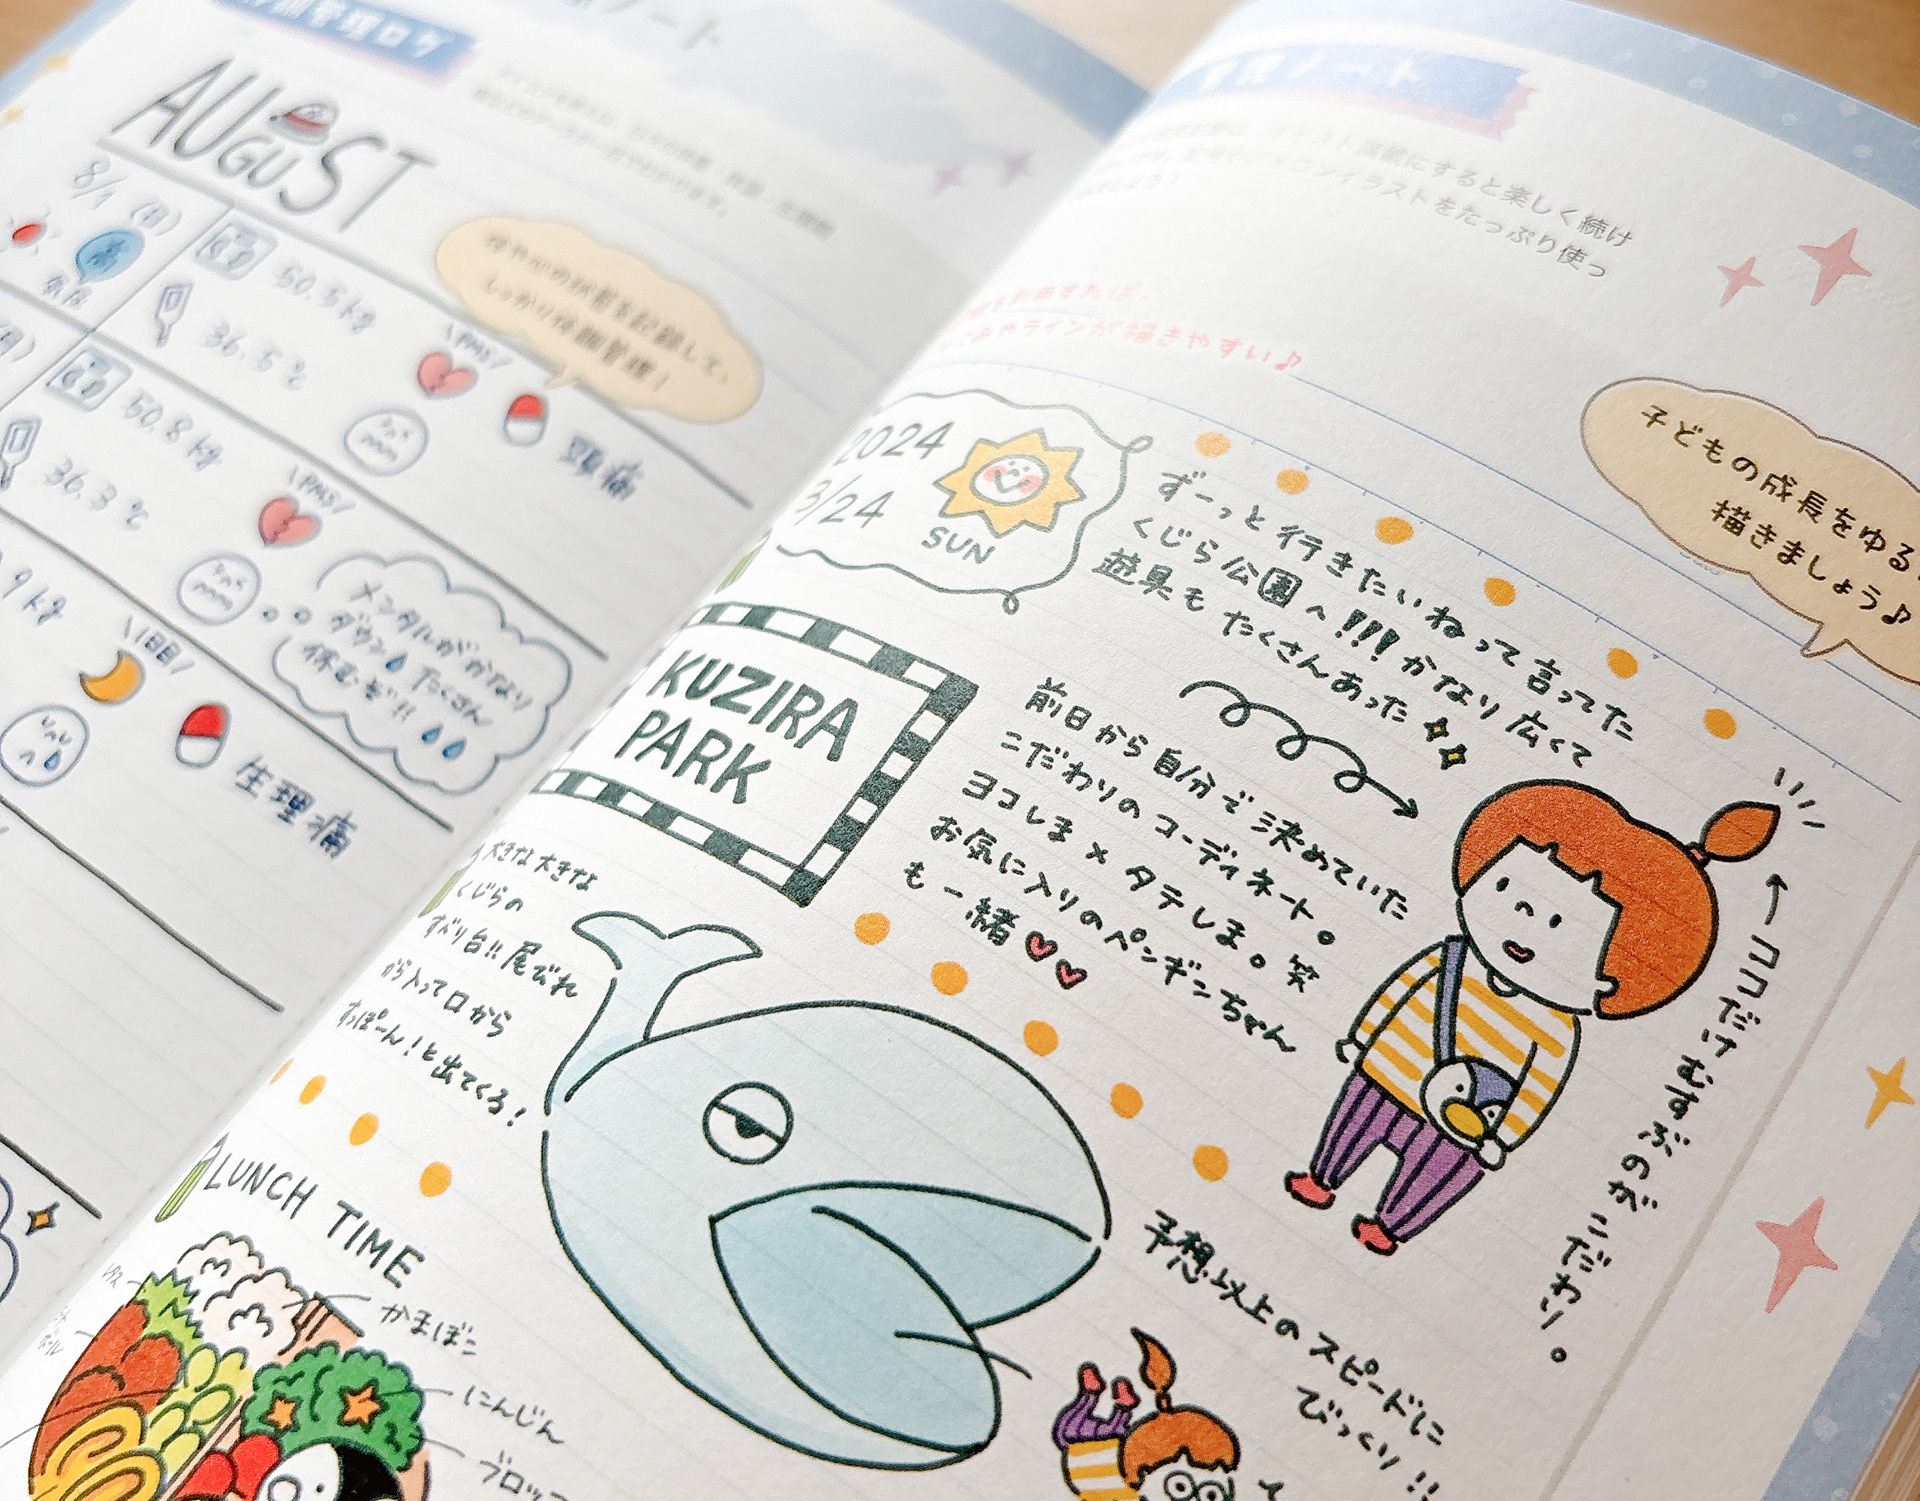 AUGUST
8/1 (日)
50.5kg
気圧
36.5℃
\PMS/
頭痛
体や心の状態を記録して、
しっかり体調管理！
50.8kg
36.3℃
\PMS/
メンタルがかなり
ダウン たくさん
休むぞ!!
\1日目/
生理痛
育児ノート
イラスト満載にすると楽しく続け
イコンイラストをたっぷり使っ
ラインが描きやすい♪
子どもの成長をゆる
描きましょう♪
2024
3/24
SUN
ずーっと行きたいねって言ってた
くじら公園へ!!! かなり広くて
遊具も たくさんあった
KUZIRA
PARK
前日から自分で決めていた
こだわりのコーディネート。
ヨコしま×タテしま。笑
お気に入りのペンギンちゃん
も一緒♥♥
←ココだけむすぶのがこだわり。
大きな大きな
くじらの
すべり台!! 尾びれ
から入って口から
すっぽーん！と出てくる！
予想以上のスピードに
びっくり!!
LUNCH TIME
レタス
かまぼこ
にんじん
ブロッコ